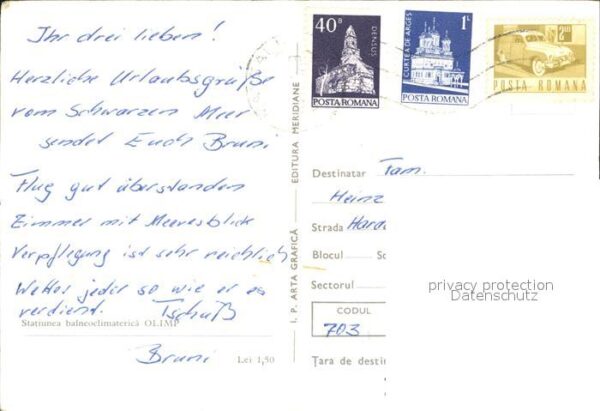 Ihr drei lieben!
Herzliche Urlaubsgrüße
vom Schwarzen Meer
sendet Euch Bruni
Flug gut überstanden
Zimmer mit Meeresblick
Verpflegung ist sehr reichlich
Wetter jeder so wie er es
verdient. Tschüß
Stațiunea balneoclimaterică OLIMP
Bruni
Lei 1,50
I. P. ARTA GRAFICĂ
EDITURA MERIDIANE
40B
DENSUS
POSTA ROMANA
1L
CURTEA DE ARGES
POSTA ROMANA
2L
POSTA ROMANA
Destinatar Fam.
Heinz
Strada
Blocul
Sc
Sectorul
CODUL
703
Țara de desti
privacy protection
Datenschutz